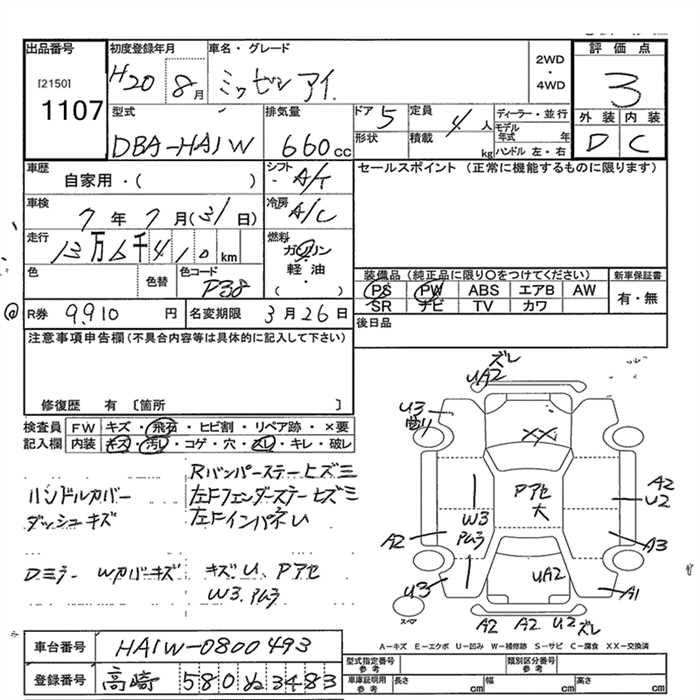 出品番号
[2150]
1107
初度登録年月
H20 8月
車名・グレード
ミツビシ アイ
2WD
・
4WD
評価点
3
型式
DBA-HA1W
排気量
660cc
ドア 5
定員 4人
形状
積載 kg
ディーラー・並行
モデル年式 年
ハンドル 左・右
外装 内装
D C
車歴
自家用・( )
シフト
A/T
セールスポイント (正常に機能するものに限ります)
車検
7年7月(31日)
冷房
A/C
走行
13万6千410km
燃料
ガソリン
・
軽油
・
( )
色
色替
色コード
P38
装備品(純正品に限り○をつけてください)
新車保証書
PS PW ABS エアB AW
SR ナビ TV カワ
有・無
R券 9910円
名変期限 3月26日
後日品
注意事項申告欄(不具合内容等は具体的に記入して下さい)
修復歴 有 〔箇所 〕
検査員記入欄
FW キズ・飛石・ヒビ割・リペア跡・×要
内装 キズ・汚レ・コゲ・穴・スレ・キレ・破レ
ハンドルカバー
ダッシュキズ
Rバンパーステーヒズミ
左Fフェンダーステーヒズミ
左FインパネU
Dミラー Wカバーキズ
キズU、Pアセ
W3.Pムラ
ズレ
UA2
U3
XX
Pアセ
大
W3
Pムラ
A2
U3
A2
U2
A3
A1
UA2
A2 A2 U2 ズレ
スペア
A-キズ E-エクボ U-凹み W-補修跡 S-サビ C-腐食 XX-交換済
車台番号
HA1W-0800493
登録番号
高崎 580 ぬ 3483
型式指定番号 参考
類別区分番号 参考
車庫証明用 参考
長さ cm
幅 cm
高さ cm